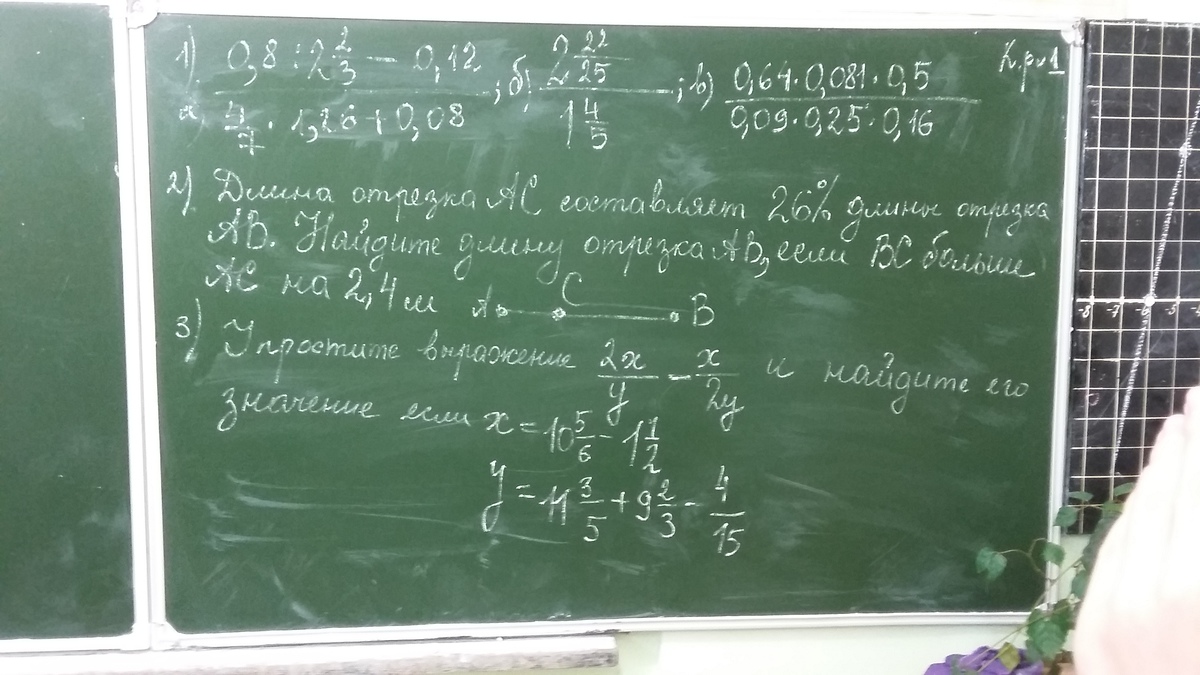 К.р.1
1) а) 0,8 : 2 2/3 − 0,12 / 4/7 · 1,26 + 0,08 ; б) 2 22/25 / 1 4/5 ; в) 0,64 · 0,081 · 0,5 / 0,09 · 0,25 · 0,16
2) Длина отрезка АС составляет 26% длины отрезка
АВ. Найдите длину отрезка АВ, если ВС больше
АС на 2,4 м
А С В
3) Упростите выражение 2x/y − x/2y и найдите его
значение если x = 10 5/6 − 1 1/2
y = 11 3/5 + 9 2/3 − 4/15
-8 -7 -6 -5